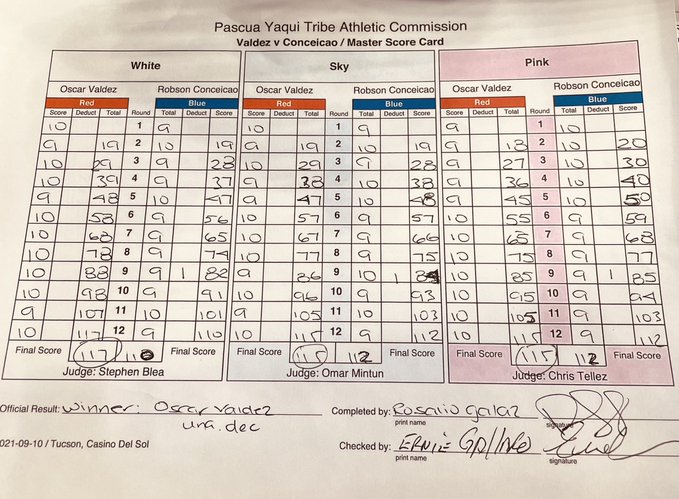 Pascua Yaqui Tribe Athletic Commission
Valdez v Conceicao / Master Score Card
White Sky Pink
Oscar Valdez Robson Conceicao Oscar Valdez Robson Conceicao Oscar Valdez Robson Conceicao
Red Blue Red Blue Red Blue
Score Deduct Total Round Score Deduct Total Score Deduct Total Round Score Deduct Total Score Deduct Total Round Score Deduct Total
10 1 9 10 1 9 9 1 10
9 19 2 10 19 9 19 2 10 19 9 18 2 10 20
10 29 3 9 28 10 29 3 9 28 9 27 3 10 30
10 39 4 9 37 9 38 4 10 38 9 36 4 10 40
9 48 5 10 47 9 47 5 10 48 9 45 5 10 50
10 58 6 9 56 10 57 6 9 57 10 55 6 9 59
10 68 7 9 65 10 67 7 9 66 10 65 7 9 68
10 78 8 9 74 10 77 8 9 75 10 75 8 9 77
10 88 9 9 1 82 9 86 9 10 1 84 10 85 9 9 1 85
10 98 10 9 91 10 96 10 9 93 10 95 10 9 94
9 107 11 10 101 9 105 11 10 103 10 105 11 9 103
10 117 12 9 110 10 115 12 9 112 10 115 12 9 112
Final Score 117 110 Final Score Final Score 115 112 Final Score Final Score 115 112 Final Score
Judge: Stephen Blea Judge: Omar Mintun Judge: Chris Tellez
Official Result: Winner: Oscar Valdez
una. dec
Completed by: Rosario Galaz
print name signature
021-09-10 / Tucson, Casino Del Sol
Checked by: ERNIE GALLARDO
print name signature